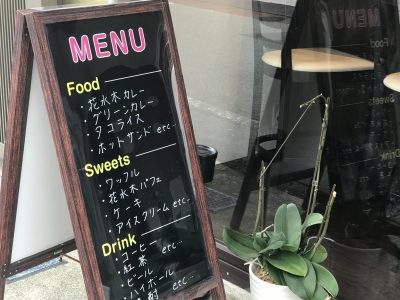 MENU
Food
・花水木カレー
・グリーンカレー
・タコライス
・ホットサンド etc...
Sweets
・ワッフル
・花水木パフェ
・ケーキ
・アイスクリーム etc...
Drink
・コーヒー
・紅茶 etc...
・ビール
・ハイボール
etc...